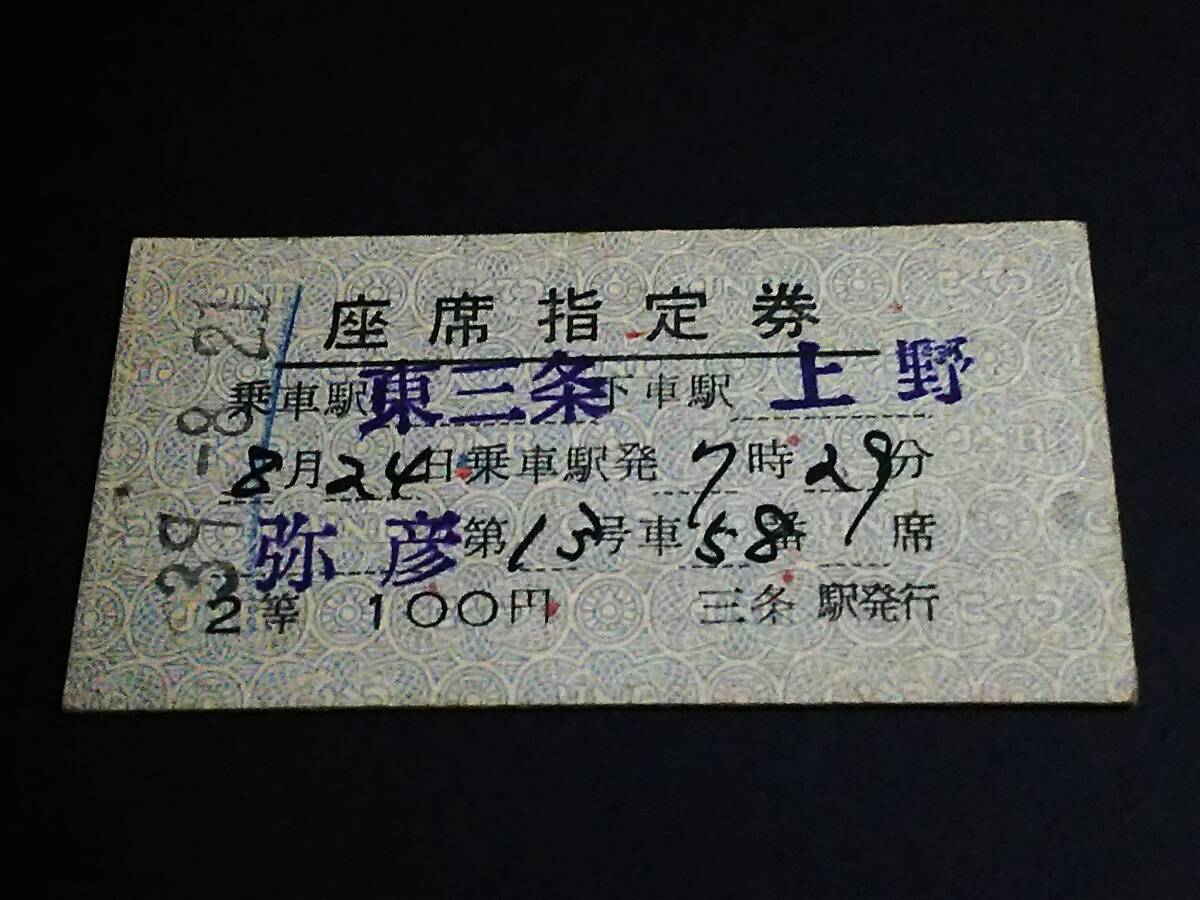 39.-8.21
座席指定券
乗車駅 東三条 下車駅 上野
8月24日 乗車駅発 7時29分
弥彦 第13号車 58番 席
2等 100円 三条駅発行